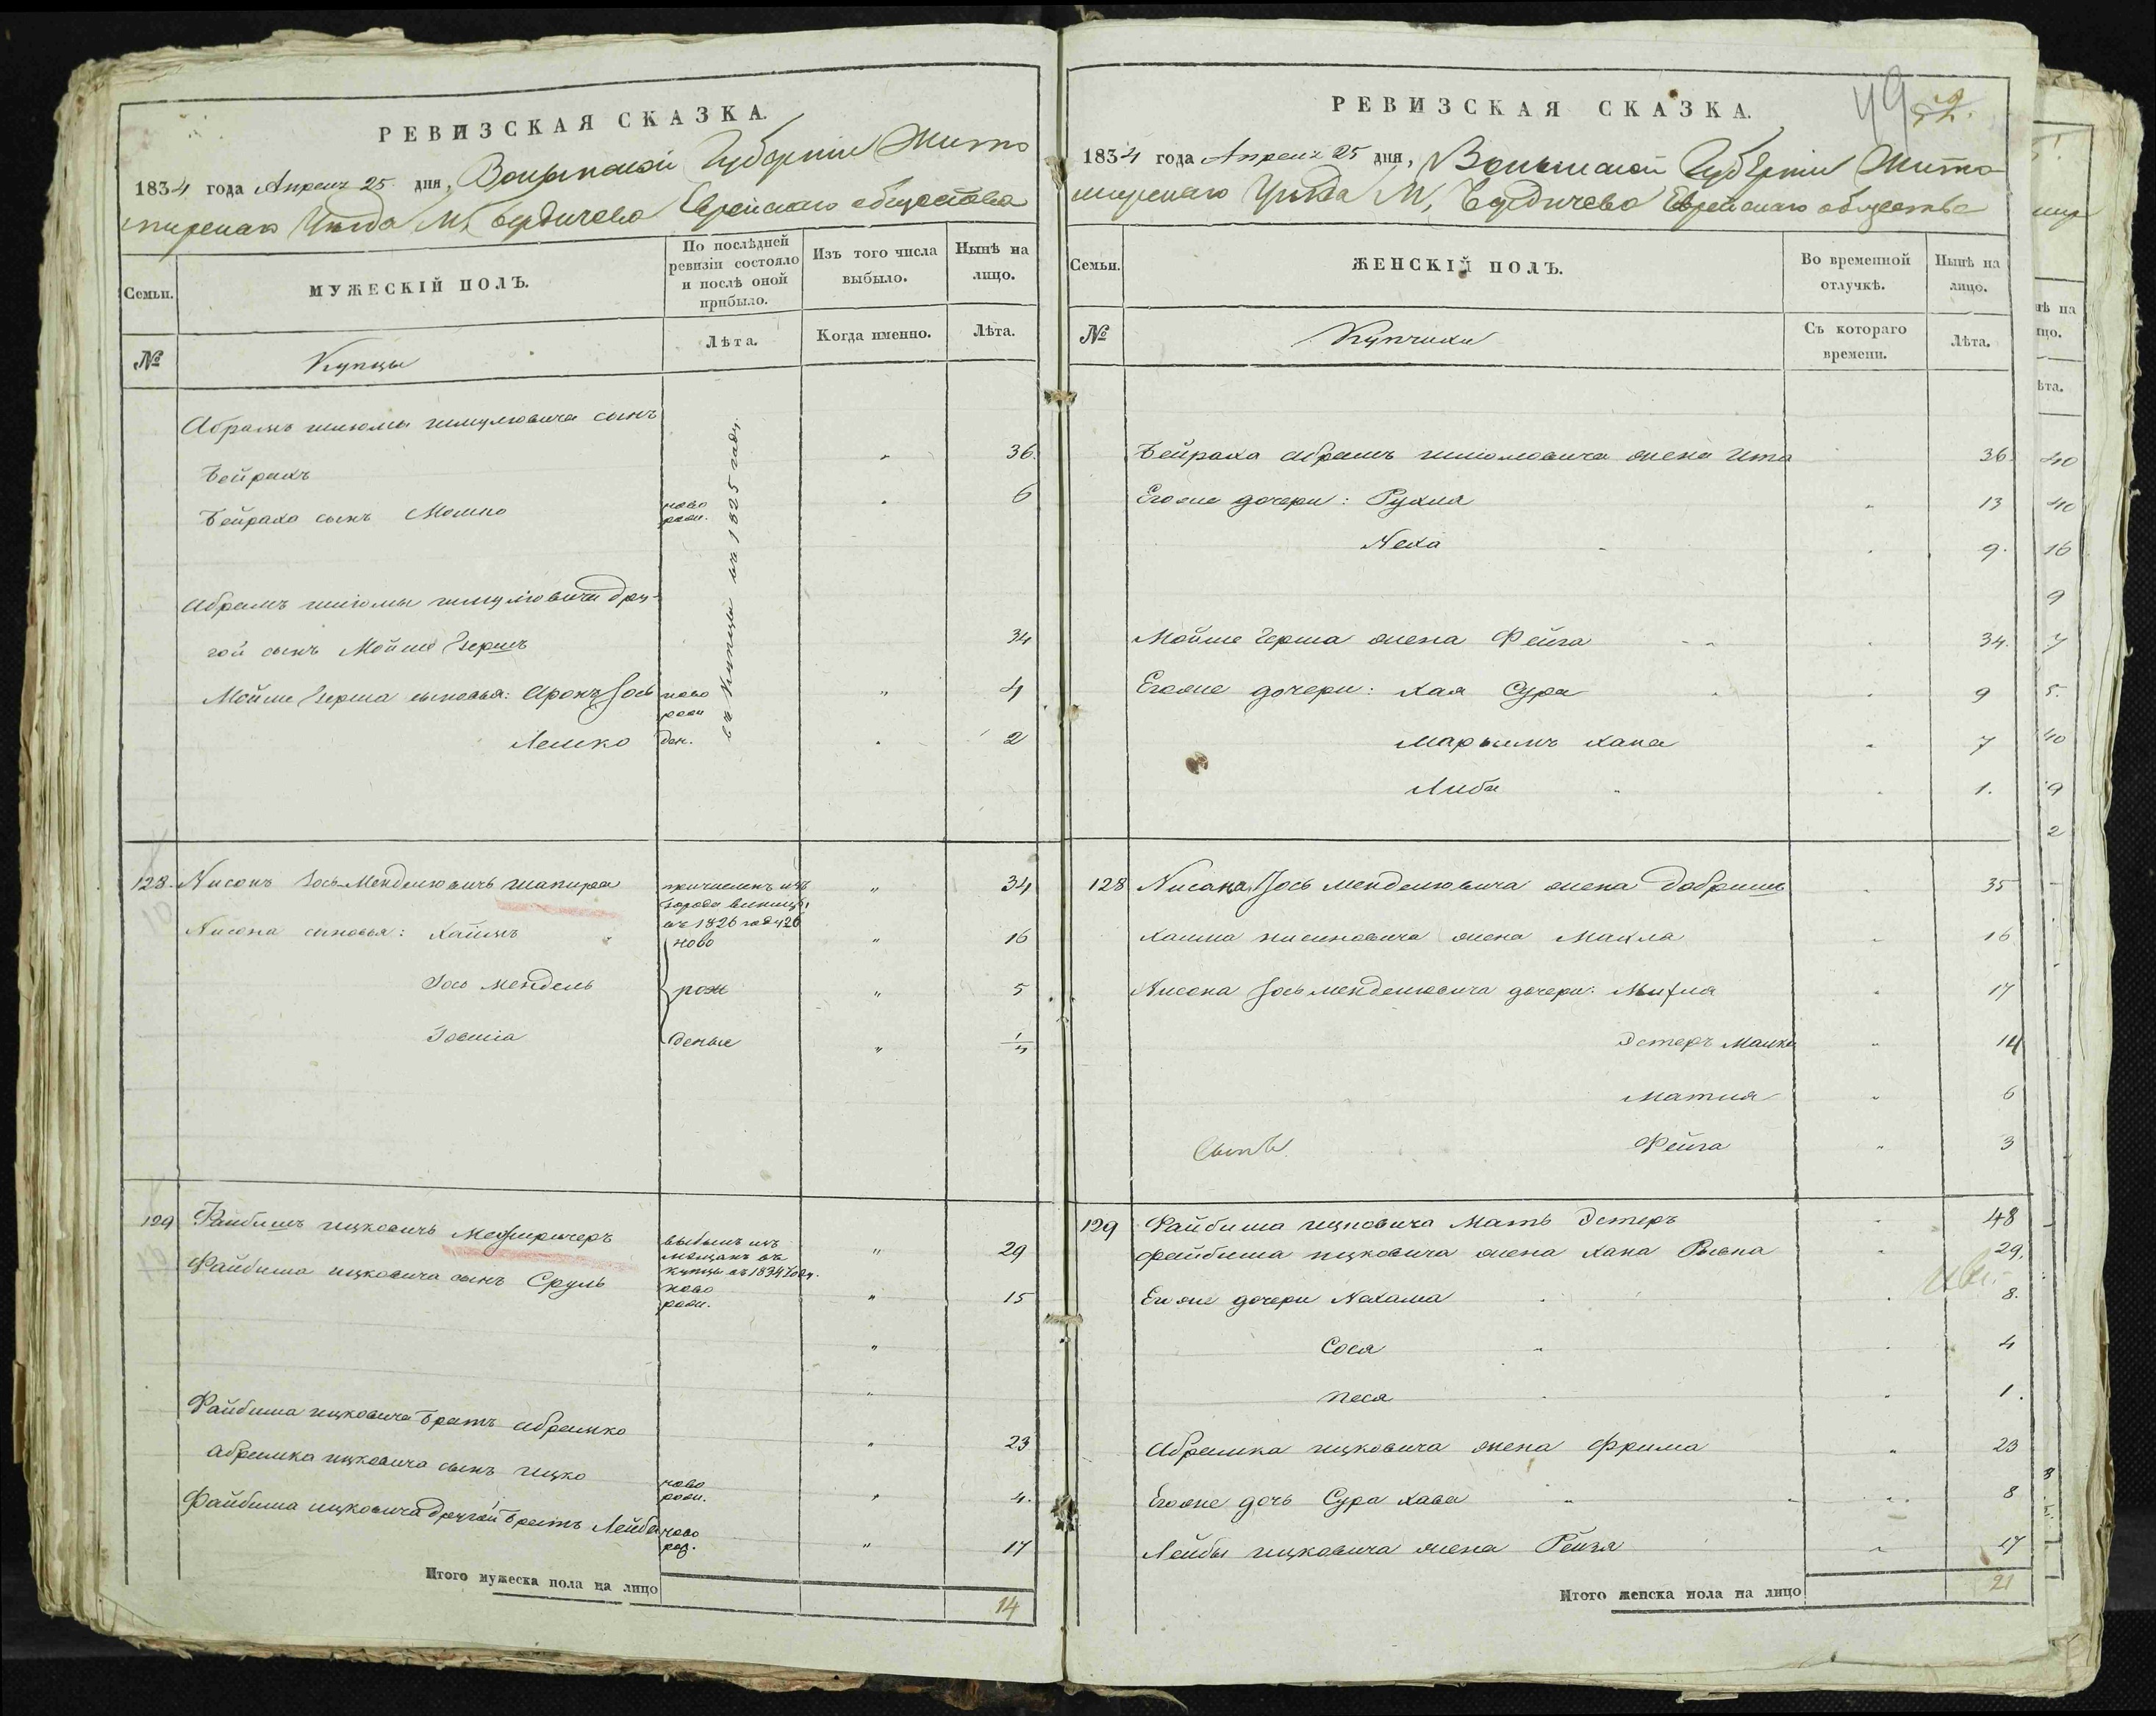 РЕВИЗСКАЯ СКАЗКА.
1834 года Апреля 25 дня, Волынской Губерніи Жито
мирскаго Уѣзда М, Бердичева Еврейскаго общества
Семьи.
МУЖЕСКІЙ ПОЛЪ.
По послѣдней ревизіи состояло и послѣ оной прибыло.
Изъ того числа выбыло.
Нынѣ на лицо.
№
Купцы
Лѣта.
Когда именно.
Лѣта.
въ купцы въ 1825 году.
Абрамъ шлюмы шмулювича сынъ
Бейрахъ 36.
Бейраха сынъ Мошко ново рож. 6
Абрамъ шлюмы шмулювича дру-
гой сынъ Мойше Гершъ 34
Мойше Герша сыновья: Аронъ Іось ново рож 4
Лешко ден. 2
128. Нисонъ Іось-Менделювичъ шапира причисленъ изъ города виницы въ 1826 году 26 " 34
Нисона сыновья: Хаимъ ново " 16
Іось Мендель рож " 5
Іовшіа деные " 1/4
129 Файбишъ ицковичъ Межиричеръ выбылъ изъ мещанъ въ купцы въ 1834 году. " 29
Файбиша ицковича сынъ Сруль ново рож. " 15
"
"
Файбиша ицковича братъ абрамко " 23
Абрамка ицковича сынъ ицко ново рож. " 4.
Файбиша ицковича другой братъ Лейба ново рož. " 17
Итого мужеска пола на лицо 14
49
52.
РЕВИЗСКАЯ СКАЗКА.
1834 года Апреля 25 дня, Волынской Губерніи Жито-
мирскаго Уѣзда М, Бердичева Еврейскаго общества
Семьи.
ЖЕНСКІЙ ПОЛЪ.
Во временной отлучкѣ.
Нынѣ на лицо.
№
Купчихи
Съ котораго времени.
Лѣта.
Бейраха абрамъ шлюмовича жена Ита 36.
Егоже дочери: Рухля 13
Неха 9.
Мойше Герша жена Фейга 34.
Егоже дочери: Хая Сура 9
Марьямъ хана 7
Либа 1.
128 Нисана Іось менделювича жена Добришъ 35
Хаима нисиновича жена Махля 16
Нисона Іось менделювича дочери: 17
Эстеръ Малка 14
Матля 6
Фейга 3
129 Файбиша ицковича Мать Эстеръ 48
файбиша ицковича жена хана Рывка 29.
Егоже дочери Нехама 8.
Сося 4
Песя 1.
Абрамка ицковича жена Фрима 23
Егоже дочь Сура хава 8
Лейбы ицковича жена Рейзя 17
Итого женска пола на лицо 21